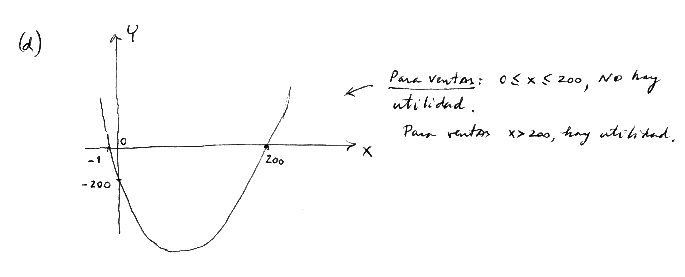 (d)
Y
Para ventas: 0 ≤ x ≤ 200, NO hay
utilidad.
Para ventas x > 200, hay utilidad.
0
-1
200
X
-200